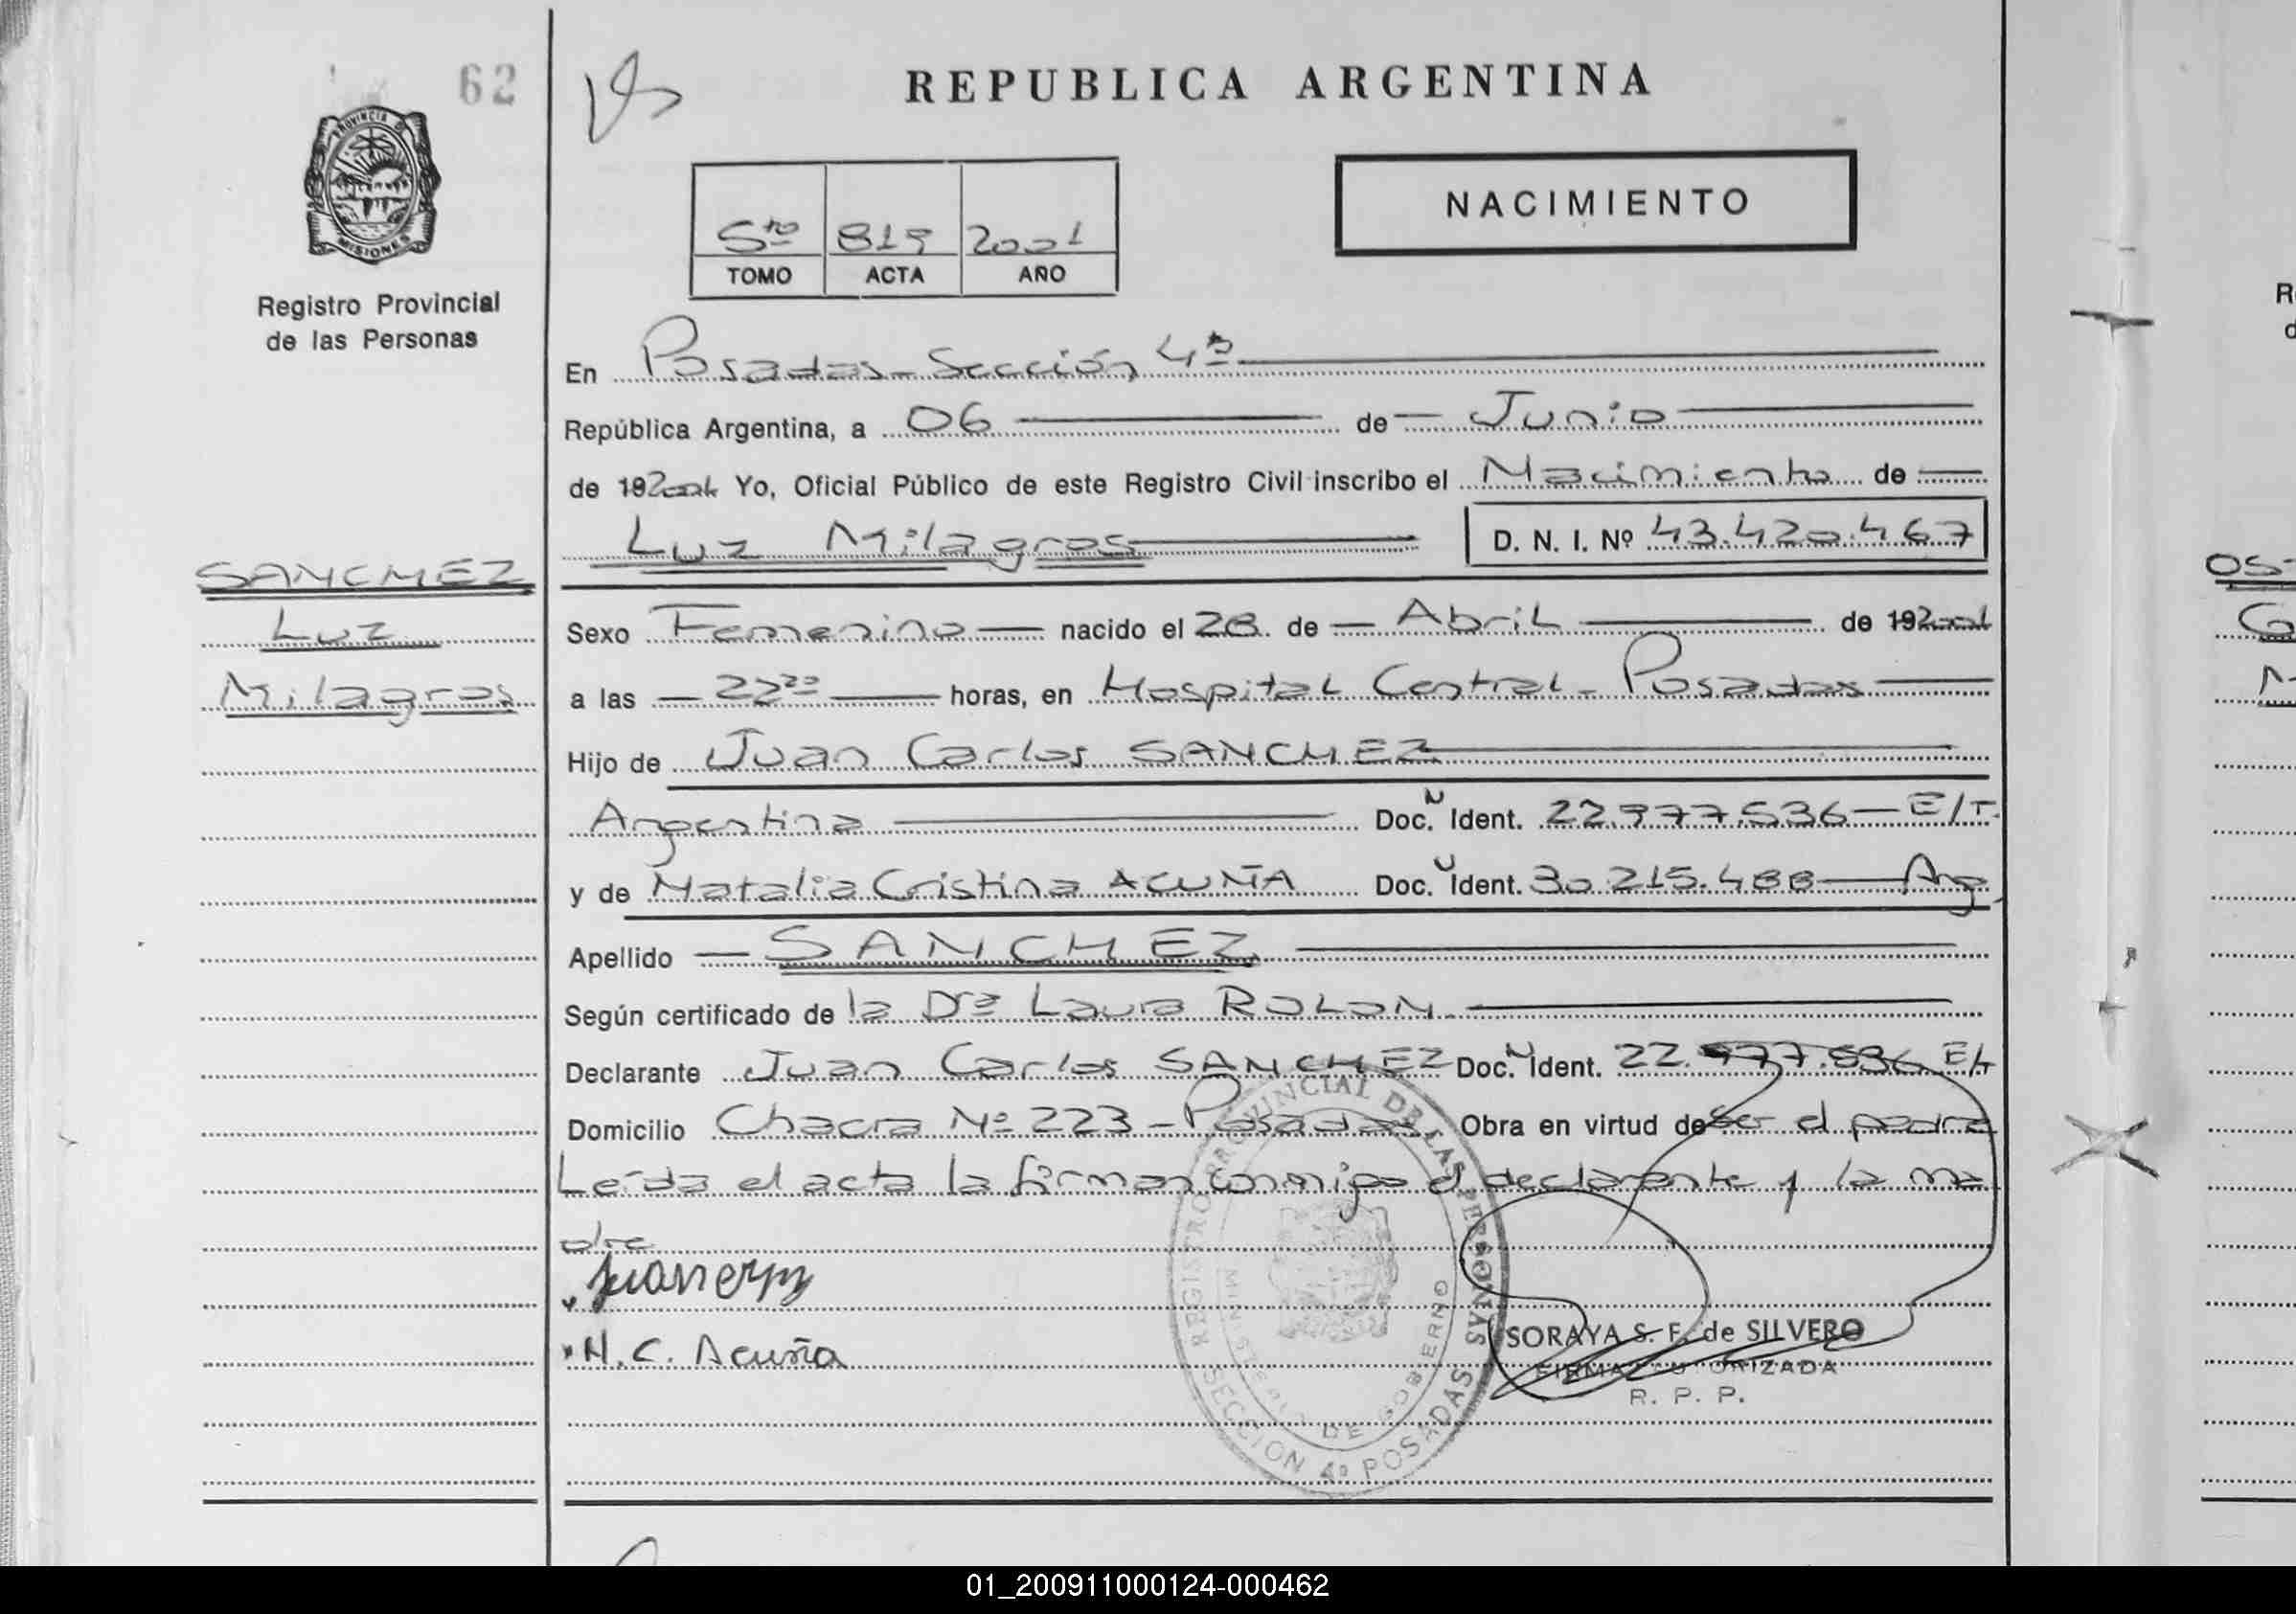 62
REPUBLICA ARGENTINA
PROVINCIA D
MISIONES
Registro Provincial
de las Personas
NACIMIENTO
5to 819 2001
TOMO ACTA AÑO
En Posadas - Sección 4ª
República Argentina, a 06 de Junio
de 192001 Yo, Oficial Público de este Registro Civil inscribo el Nacimiento de
Luz Milagros D. N. I. Nº 43.420.467
SANCHEZ
Luz
Milagros
Sexo Femenino nacido el 28 de Abril de 192001
a las 22²⁰ horas, en Hospital Central - Posadas
Hijo de Juan Carlos SANCHEZ
Argentina Doc. N Ident. 22.977.536 - E/T.
y de Natalia Cristina ACUÑA Doc. U Ident. 30.215.488 - Arg
Apellido SANCHEZ
Según certificado de la Drª Laura ROLON
Declarante Juan Carlos SANCHEZ Doc. N Ident. 22.977.536 E/T
Domicilio Chacra Nº 223 - Posadas Obra en virtud de ser el padre
Leída el acta la firman conmigo el declarante y la ma
dre
N. C. Acuña
REGISTRO PROVINCIAL DE LAS PERSONAS
MINISTERIO DE GOBIERNO
SECCION 4ª POSADAS
SORAYA S. F. de SILVERO
FIRMA AUTORIZADA
R. P. P.
R
d
OS
G
M
01_200911000124-000462